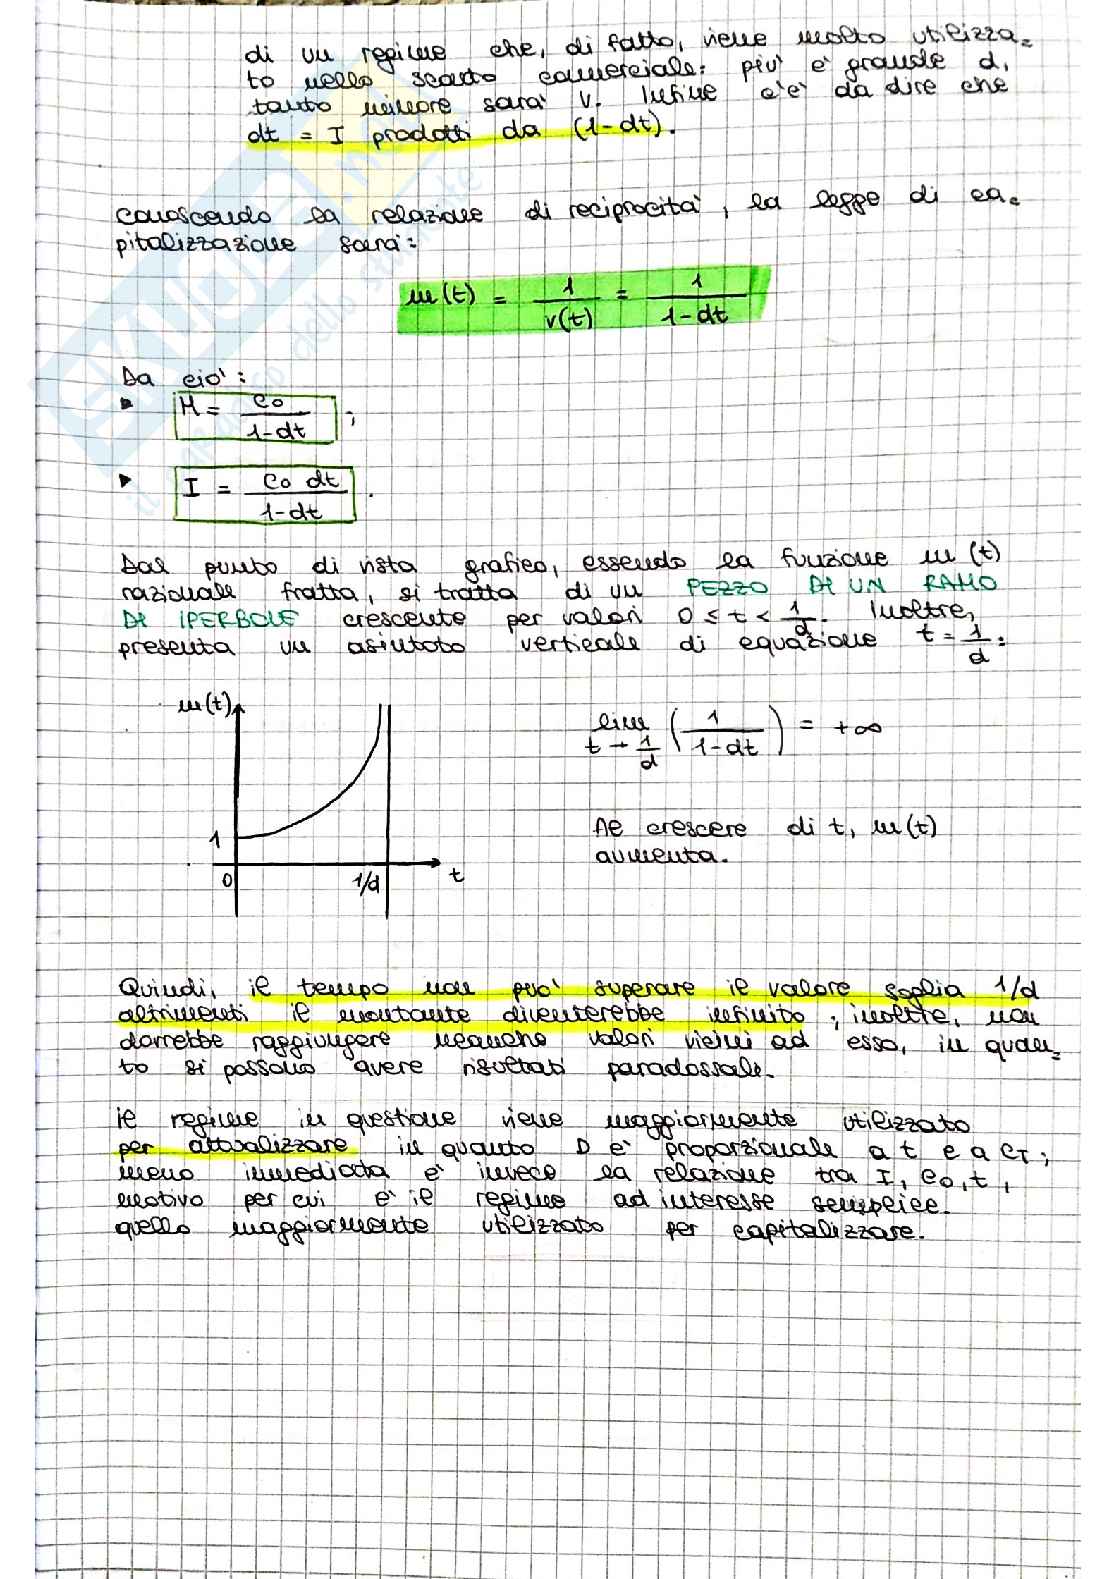 di un regime che, di fatto, viene molto utilizza=
to nello sconto commerciale: piu' e' grande d,
tanto minore sara' v. Infine c'e' da dire che
dt = I prodotti da (1-dt).
Conoscendo la relazione di reciprocita', la legge di ca=
pitalizzazione sara':
m(t) = 1/v(t) = 1/1-dt
Da cio':
M = C0/1-dt ;
I = C0 dt/1-dt .
Dal punto di vista grafico, essendo la funzione m(t)
razionale fratta, si tratta di un PEZZO DI UN RAMO
DI IPERBOLE crescente per valori 0 ≤ t < 1/d. Inoltre,
presenta un asintoto verticale di equazione t = 1/d:
m(t)
1
0
1/d
t
lim t→1/d (1/1-dt) = +∞
Al crescere di t, m(t)
aumenta.
Quindi, il tempo non puo' superare il valore soglia 1/d
altrimenti il montante diventerebbe infinito; inoltre, non
dovrebbe raggiungere neanche valori vicini ad esso, in quan=
to si possono avere risultati paradossali.
Il regime in questione viene maggiormente utilizzato
per attualizzare in quanto D e' proporzionale a t e a CT;
meno immediata e' invece la relazione tra I, C0, t,
motivo per cui e' il regime ad interesse semplice
quello maggiormente utilizzato per capitalizzare.
SKUOLA.net
il paradiso dello studente